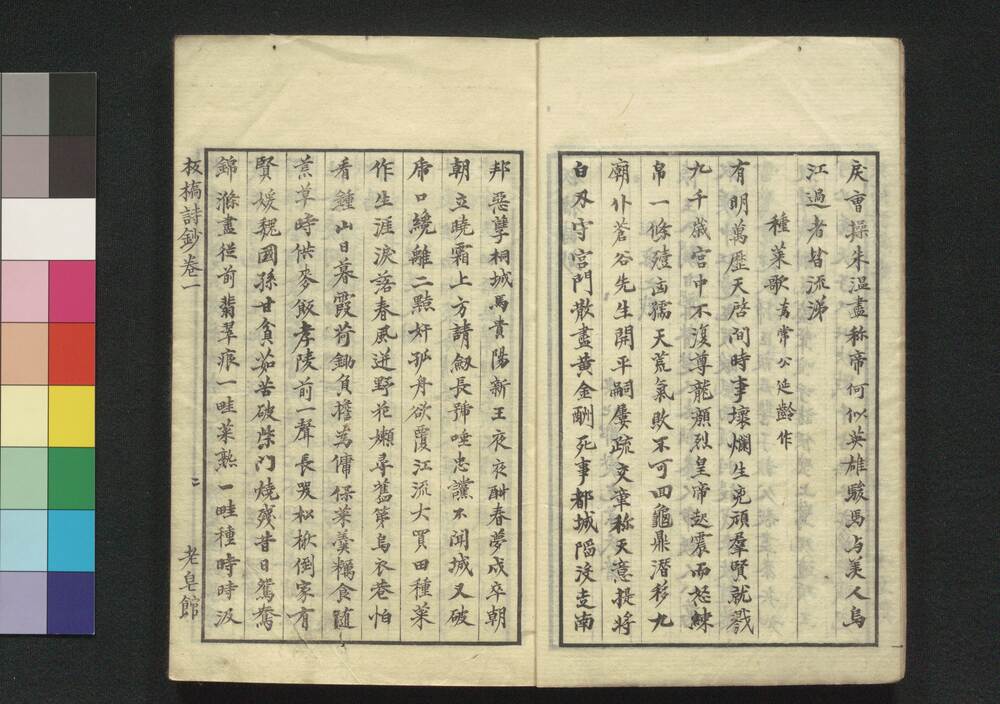 戾曹操朱溫盡称帝何似英雄駿馬与美人烏
江過者皆流涕
種菜歌 為常公延齡作
有明萬歷天啓間時事壞爛生兇頑羣賢就戮
九千歲宮中不復尊龍顏烈皇帝起震而怒練
帛一條殪凶孺天荒氣敗不可回龜鼎潛移九
廟仆蒼谷先生開平嗣屢疏文章称天意提將
白刃守宮門散盡黃金酬死事都城陷没走南
邦惡孽桐城馬貴陽新王夜夜酣春夢戍卒朝
朝立曉霜上方請劔長號唾忠讜不聞城又破
虎口纔離二點奸孤舟欲覆江流大買田種菜
作生涯淚落春風迸野花嬾尋舊第烏衣巷怕
看鍾山日暮霞荷鋤負擔為傭保菜羹糲食隨
荒草時供麥飯孝陵前一聲長哭松楸倒家有
賢媛魏國孫甘貧茹苦破柴門燒殘昔日鴛鴦
錦滌盡從前翡翠痕一畦菜熟一畦種時時汲
板橋詩鈔卷一 二 老皂館